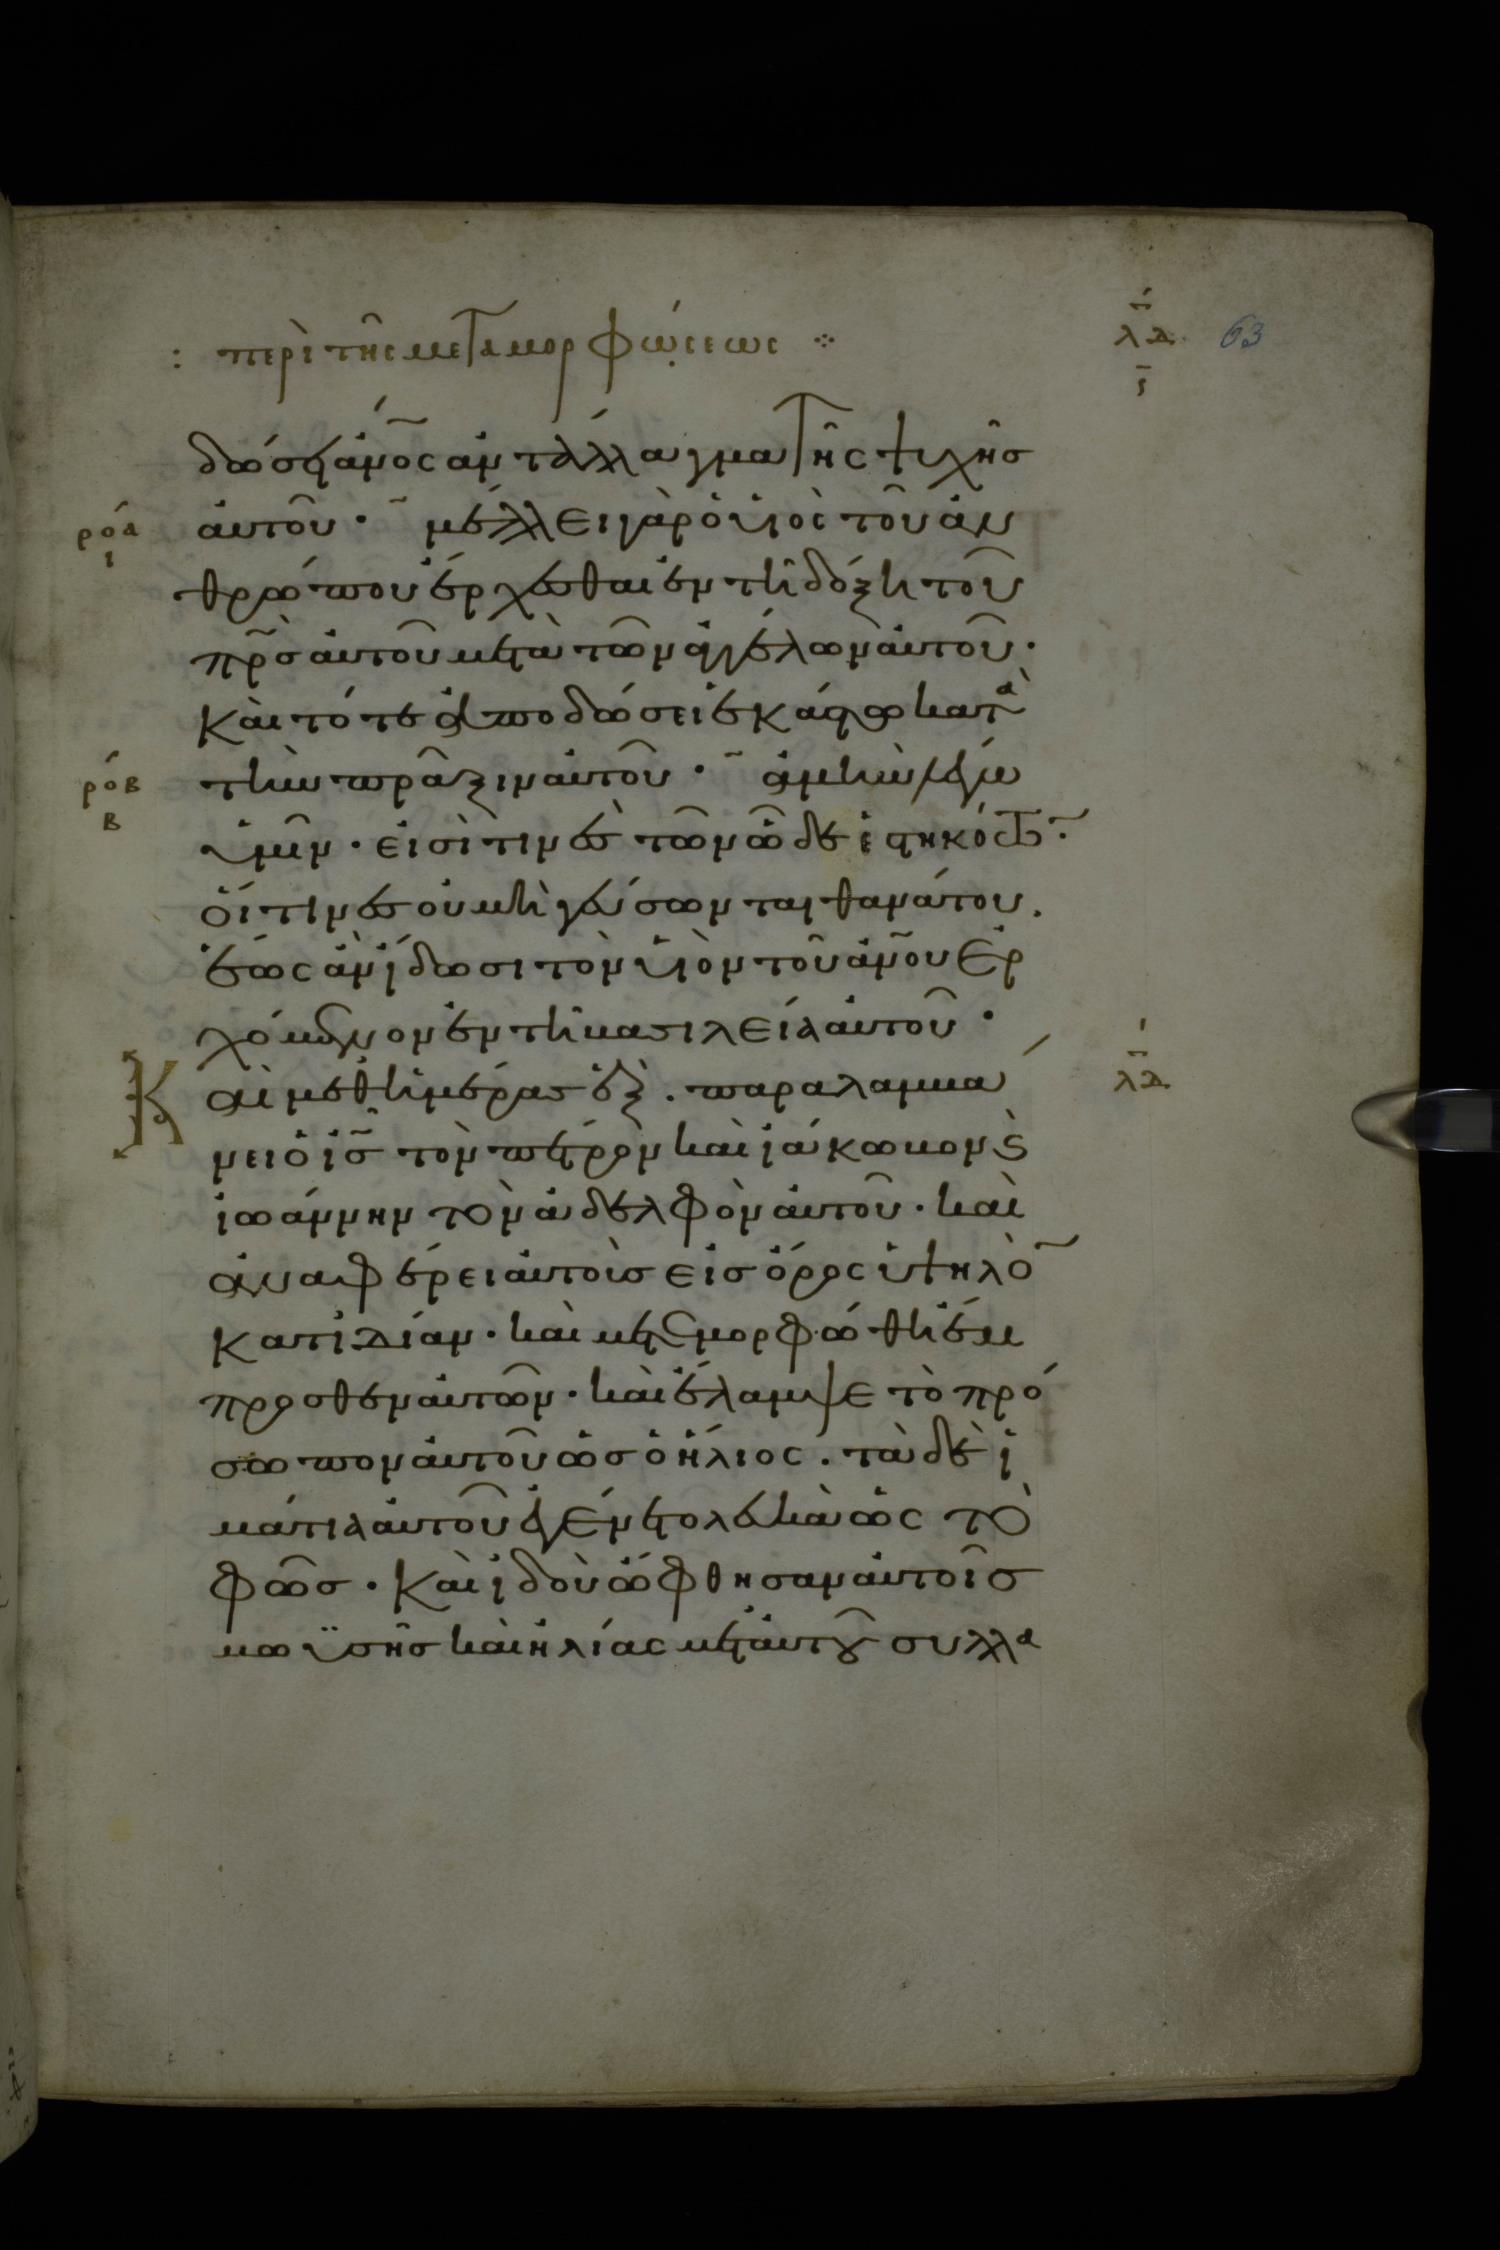 : περὶ τῆς μεταμορφώσεως ⁘
λδ 63
ι
δώσει ἄνος ἀντάλλαγμα τῆς ψυχῆς
ροα
ι
αὐτοῦ · μέλλει γὰρ ὁ υἱὸς τοῦ ἀν
θρώπου ἔρχεσθαι ἐν τῆ δόξη τοῦ
πρς αὐτοῦ μετὰ τῶν ἀγγέλων αὐτοῦ ·
καὶ τότε ἀποδώσει ἑκάστω κατὰ
ροβ
β
τὴν πρᾶξιν αὐτοῦ · ἀμὴν λέγω
ὑμῖν · εἰσὶ τινὲς τῶν ὧδε ἑστηκότων ·
οἵτινες οὐ μὴ γεύσωνται θανάτου .
ἕως ἂν ἴδωσι τὸν υἱὸν τοῦ ἀνου ἐρ
χόμενον ἐν τῆ βασιλείᾳ αὐτοῦ ·
Καὶ μεθ ἡμέρας ἓξ . παραλαμβά
λδ
νει ὁ ις τὸν πέτρον καὶ ἰάκωβον ϗ
ἰωάννην τὸν ἀδελφὸν αὐτοῦ · καὶ
ἀναφέρει αὐτοὺς εἰς ὄρος ὑψηλὸ
κατιδίαν · καὶ μετεμορφώθη ἔμ
προσθεν αὐτῶν · καὶ ἔλαμψε τὸ πρό
σωπον αὐτοῦ ὡς ὁ ἥλιος . τὰ δὲ ἱ
μάτια αὐτοῦ ἐγένετο λευκὰ ὡς τὸ
φῶς · καὶ ἰδοὺ ὤφθησαν αὐτοῖς
μωϋσῆς καὶ ἠλίας μετ αὐτοῦ συλλα